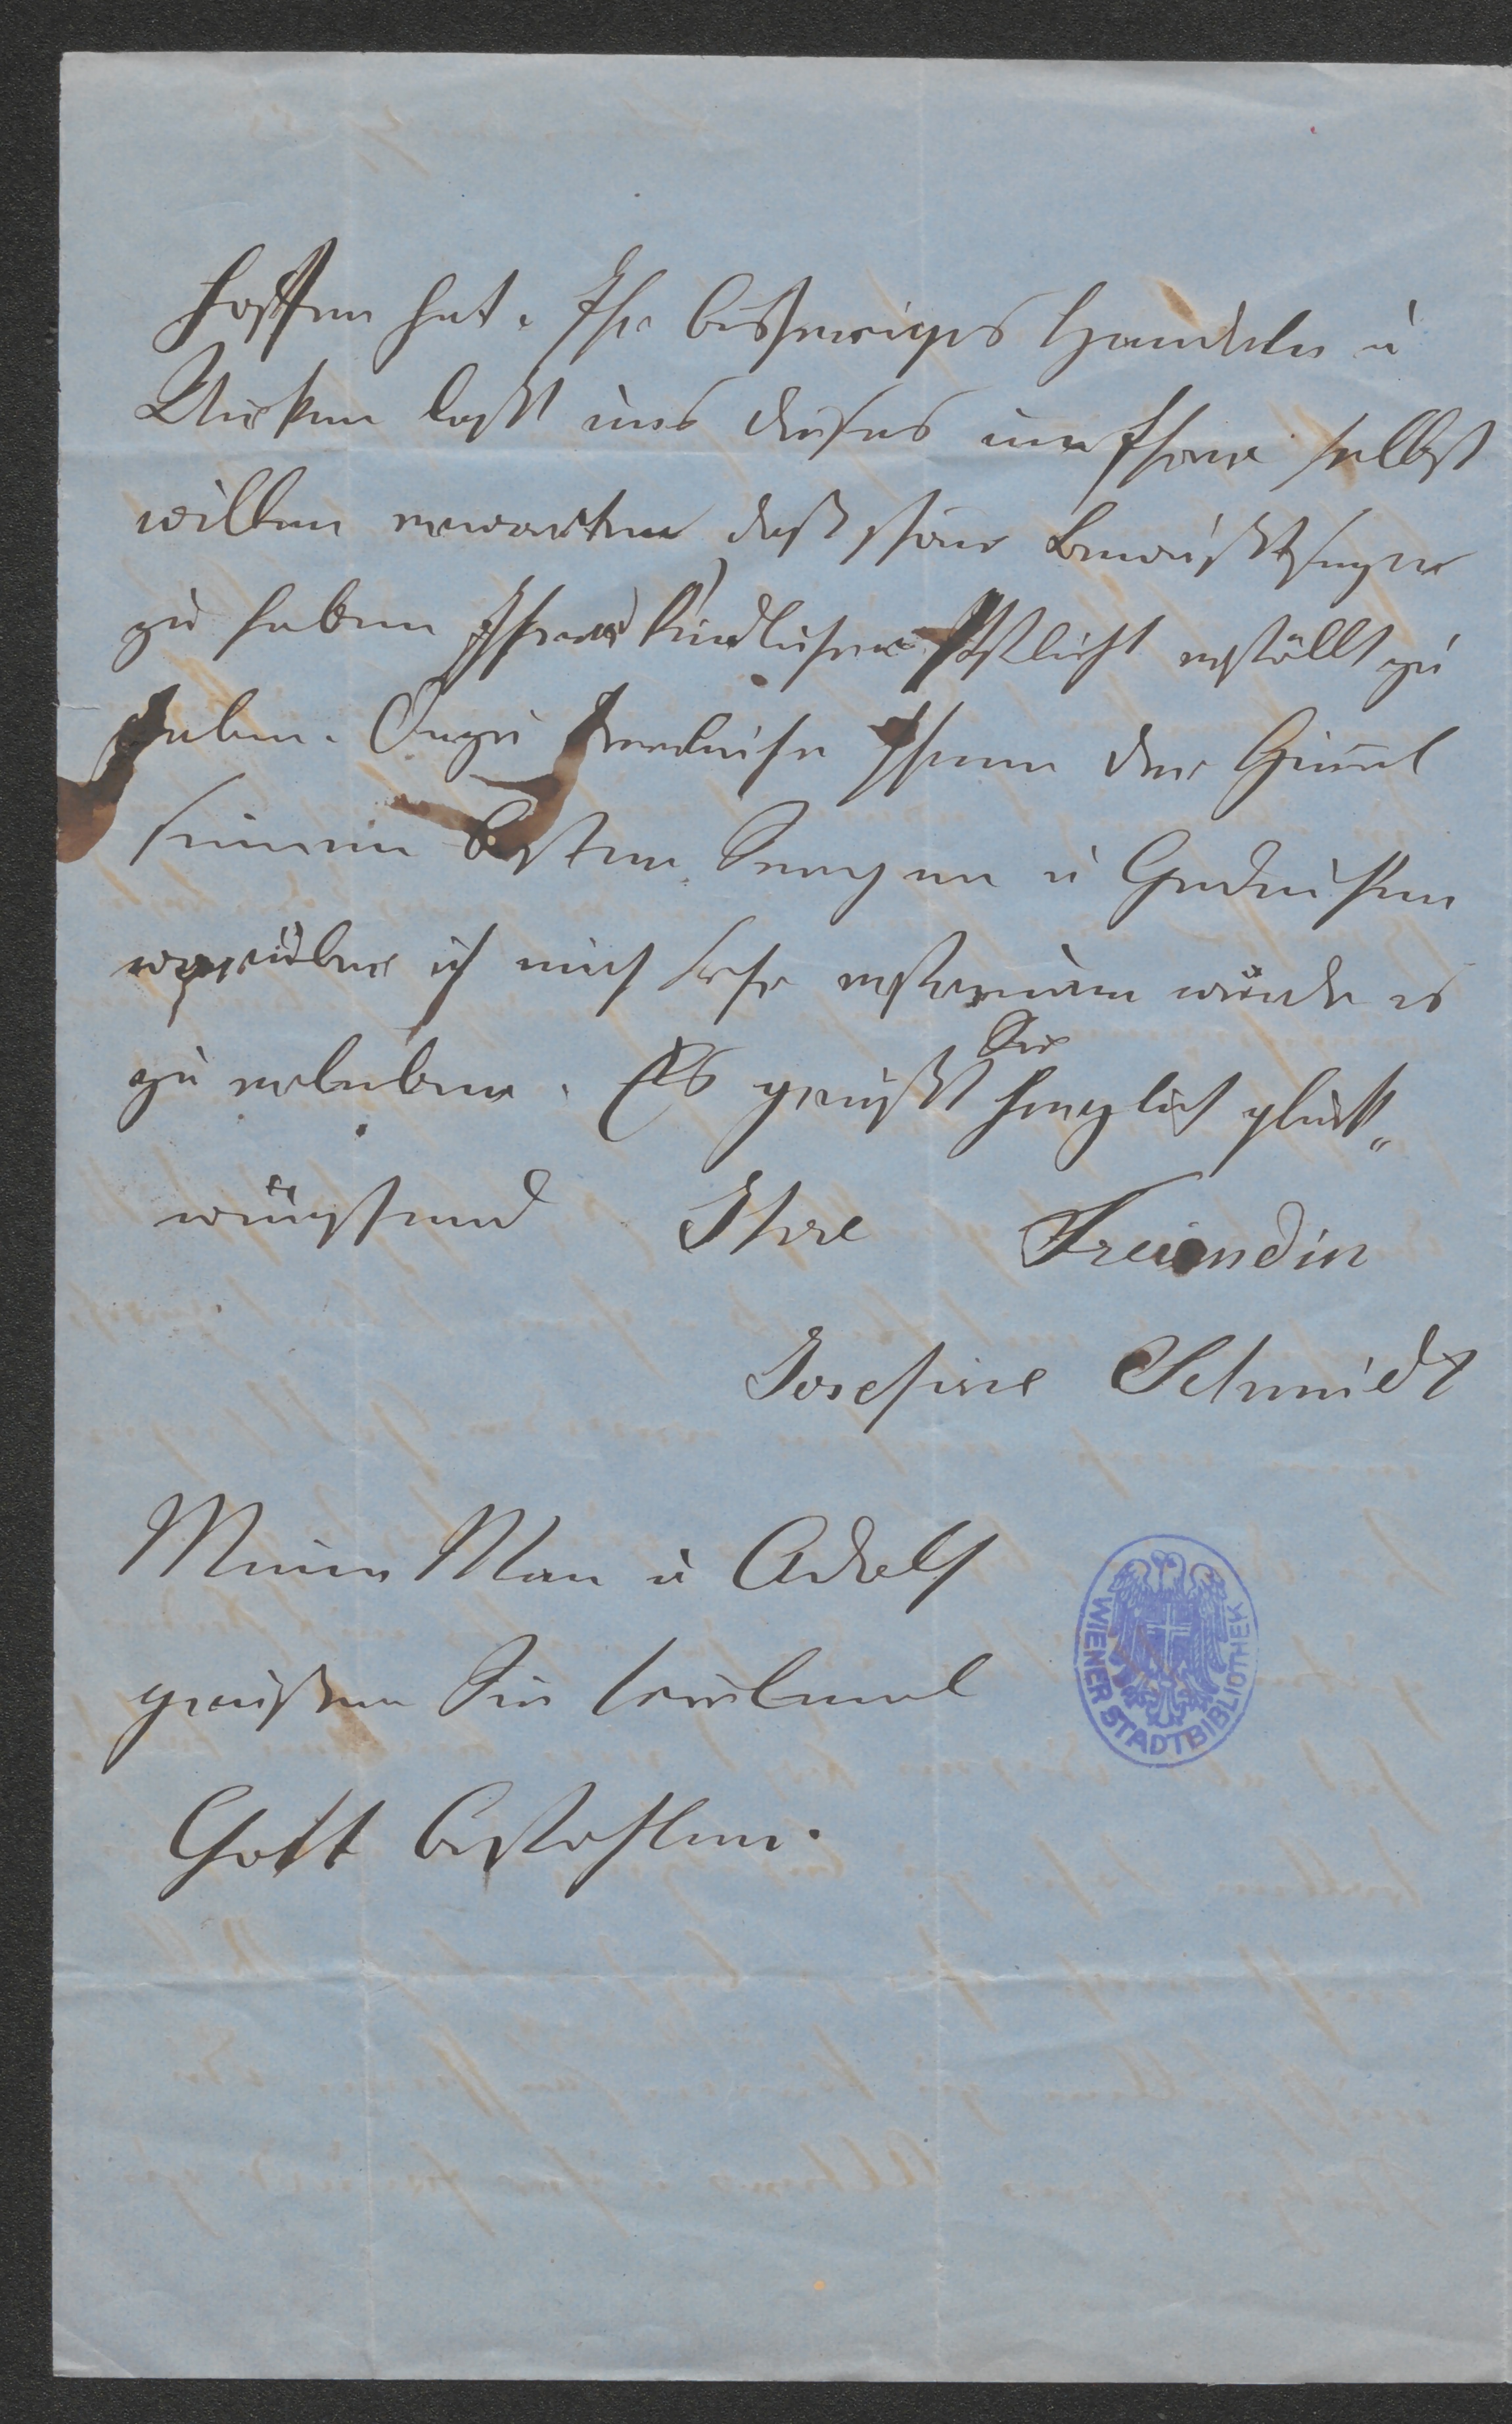 hoffen hat. Ihr bisheriges Handeln u
Wirken laßt uns dieses um Ihrer selbst
willen erwarten, daß schöne Bewußtsein
zu haben Ihrer kindlichen Pflicht erfüllt zu
haben. Dazu verleihe Ihnen der Himel
seinen besten Seegen u Gedeihen
worüber ich mich sehr erfreuen würde es
zu erleben. Es grüßt Sie herzlich glück„
wünschend Ihre Freundin
Josefine Schmidt
Mein Man u Adolf
grüßen Sie
Gott befohlen.
WIENER STADTBIBLIOTHEK